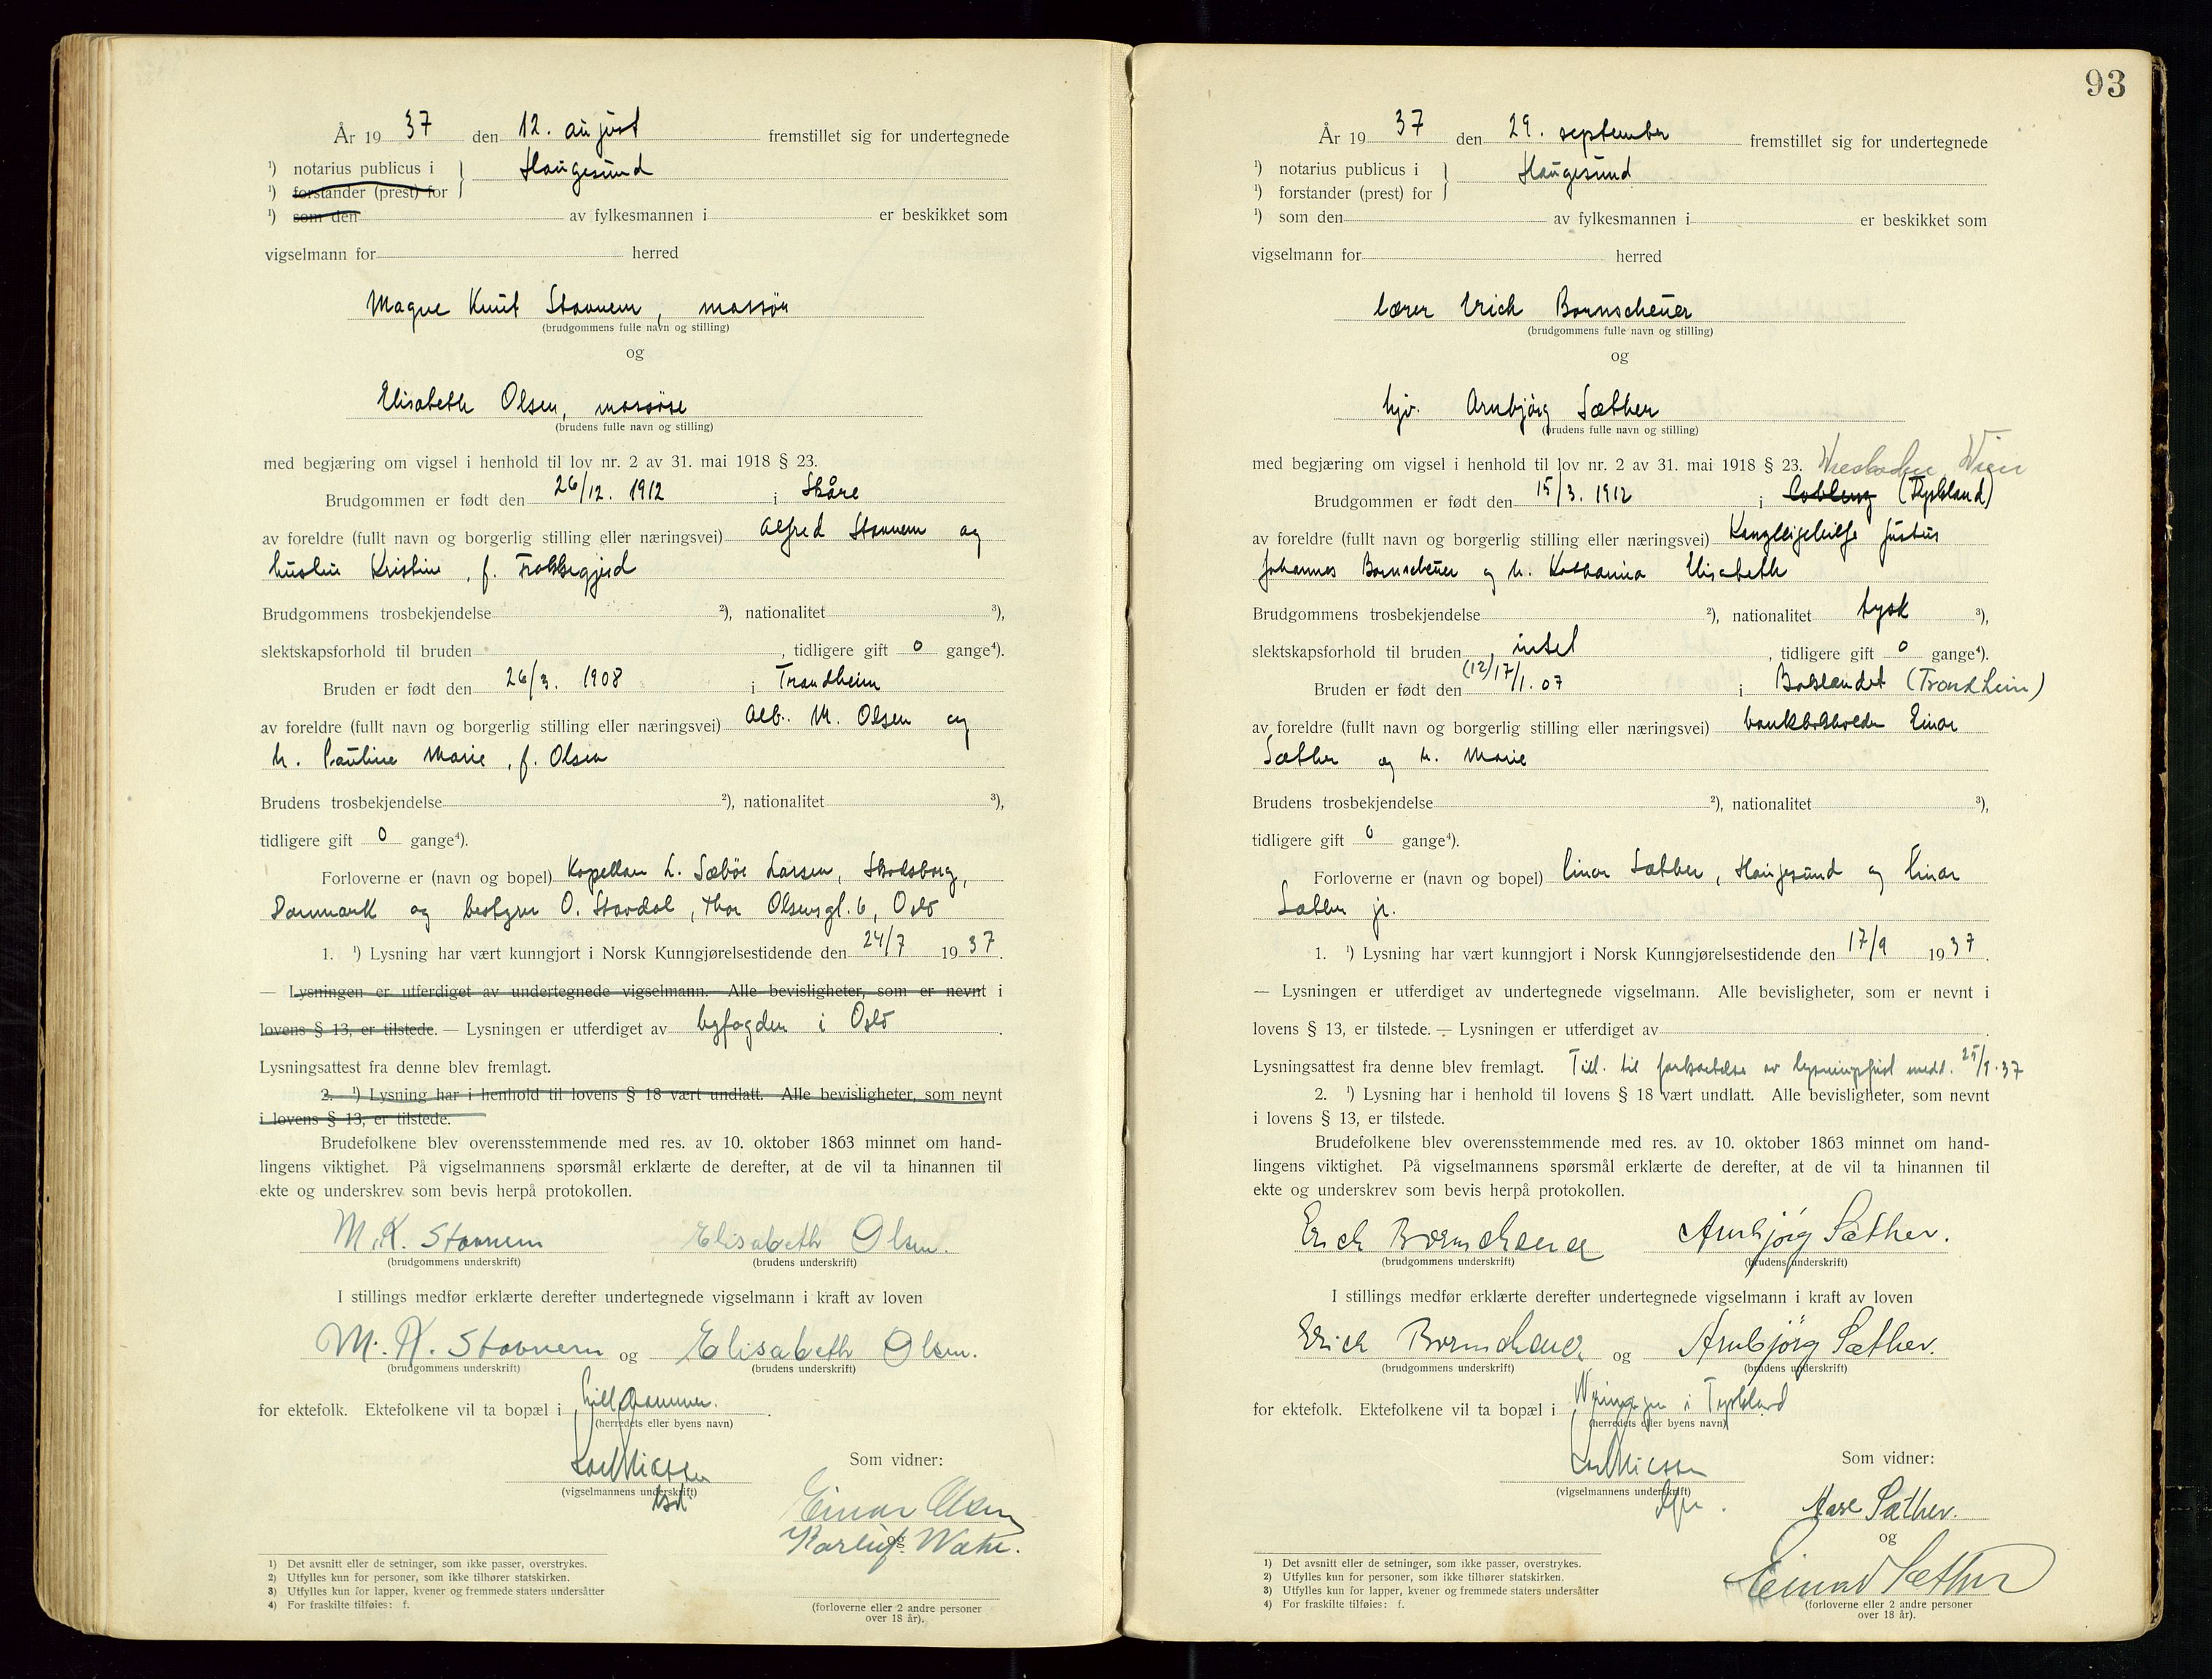 År 19 37 den 12. august fremstillet sig for undertegnede
¹) notarius publicus i } Haugesund
¹) forstander (prest) for
¹) som den av fylkesmannen i er beskikket som
vigselmann for herred
Magne Knut Stavnem, massör
(brudgommens fulle navn og stilling)
og
Elisabeth Olsen, massöse
(brudens fulle navn og stilling)
med begjæring om vigsel i henhold til lov nr. 2 av 31. mai 1918 § 23.
Brudgommen er født den 26/12. 1912 i Skåre
av foreldre (fullt navn og borgerlig stilling eller næringsvei) Alfred Stavnem og
hustru Kristine, f.
Brudgommens trosbekjendelse ²), nationalitet ³),
slektskapsforhold til bruden , tidligere gift 0 gange⁴).
Bruden er født den 26/3. 1908 i Trondheim
av foreldre (fullt navn og borgerlig stilling eller næringsvei) Alb. M. Olsen og
h. Pauline Marie, f. Olsen
Brudens trosbekjendelse ²), nationalitet ³),
tidligere gift 0 gange⁴).
Forloverne er (navn og bopel) Kapellan L. Sæböe Larsen, Skodsborg,
Danmark og bestyrer O. Stavdal, Thor Olsensgt. 6, Oslo
1. ¹) Lysning har vært kunngjort i Norsk Kunngjørelsestidende den 24/7 19 37.
— Lysningen er utferdiget av undertegnede vigselmann. Alle bevisligheter, som er nevnt i
lovens § 13, er tilstede. — Lysningen er utferdiget av byfogden i Oslo.
Lysningsattest fra denne blev fremlagt.
2. ¹) Lysning har i henhold til lovens § 18 vært undlatt. Alle bevisligheter, som nevnt
i lovens § 13, er tilstede.
Brudefolkene blev overensstemmende med res. av 10. oktober 1863 minnet om hand-
lingens viktighet. På vigselmannens spørsmål erklærte de derefter, at de vil ta hinannen til
ekte og underskrev som bevis herpå protokollen.
M. K. Stavnem Elisabeth Olsen.
(brudgommens underskrift) (brudens underskrift)
I stillings medfør erklærte derefter undertegnede vigselmann i kraft av loven
M. K. Stavnem og Elisabeth Olsen.
(brudgommens underskrift) (brudens underskrift)
for ektefolk. Ektefolkene vil ta bopæl i Lillehammer.
(herredets eller byens navn)
Som vidner:
(vigselmannens underskrift)
Einar Olsen
og
(forloverne eller 2 andre personer
over 18 år).
1) Det avsnitt eller de setninger, som ikke passer, overstrykes.
2) Utfylles kun for personer, som ikke tilhører statskirken.
3) Utfylles kun for lapper, kvener og fremmede staters undersåtter
4) For fraskilte tilføies: f.
93
År 19 37 den 29. september fremstillet sig for undertegnede
¹) notarius publicus i } Haugesund
¹) forstander (prest) for
¹) som den av fylkesmannen i er beskikket som
vigselmann for herred
lærer Erich Bornscheuer
(brudgommens fulle navn og stilling)
og
frk. Arnbjörg Sæther
(brudens fulle navn og stilling)
med begjæring om vigsel i henhold til lov nr. 2 av 31. mai 1918 § 23. Wiesbaden
Brudgommen er født den 15/3. 1912 i Coblenz (Tyskland)
av foreldre (fullt navn og borgerlig stilling eller næringsvei) Kanzleigehilfe Justus
Johannes Bornscheuer og h. Katharina Elisabeth
Brudgommens trosbekjendelse ²), nationalitet tysk ³),
slektskapsforhold til bruden intet , tidligere gift 0 gange⁴).
Bruden er født den (12)17/1. 07 i Baklandet (Trondheim)
av foreldre (fullt navn og borgerlig stilling eller næringsvei) bankbokholder Einar
Sæther og h. Marie
Brudens trosbekjendelse ²), nationalitet ³),
tidligere gift 0 gange⁴).
Forloverne er (navn og bopel) Einar Sæther, Haugesund og Einar
Sæther jr.
1. ¹) Lysning har vært kunngjort i Norsk Kunngjørelsestidende den 17/9 19 37.
— Lysningen er utferdiget av undertegnede vigselmann. Alle bevisligheter, som er nevnt i
lovens § 13, er tilstede. — Lysningen er utferdiget av .
Lysningsattest fra denne blev fremlagt. Till. til forkortelse av lysningsfrist medd. 25/9.37
2. ¹) Lysning har i henhold til lovens § 18 vært undlatt. Alle bevisligheter, som nevnt
i lovens § 13, er tilstede.
Brudefolkene blev overensstemmende med res. av 10. oktober 1863 minnet om hand-
lingens viktighet. På vigselmannens spørsmål erklærte de derefter, at de vil ta hinannen til
ekte og underskrev som bevis herpå protokollen.
Erich Bornscheuer Arnbjörg Sæther.
(brudgommens underskrift) (brudens underskrift)
I stillings medfør erklærte derefter undertegnede vigselmann i kraft av loven
Erich Bornscheuer og Arnbjörg Sæther.
(brudgommens underskrift) (brudens underskrift)
for ektefolk. Ektefolkene vil ta bopæl i i Tyskland
(herredets eller byens navn)
Som vidner:
(vigselmannens underskrift)
Aase Sæther.
og
Einar Sæther
(forloverne eller 2 andre personer
over 18 år).
1) Det avsnitt eller de setninger, som ikke passer, overstrykes.
2) Utfylles kun for personer, som ikke tilhører statskirken.
3) Utfylles kun for lapper, kvener og fremmede staters undersåtter
4) For fraskilte tilføies: f.